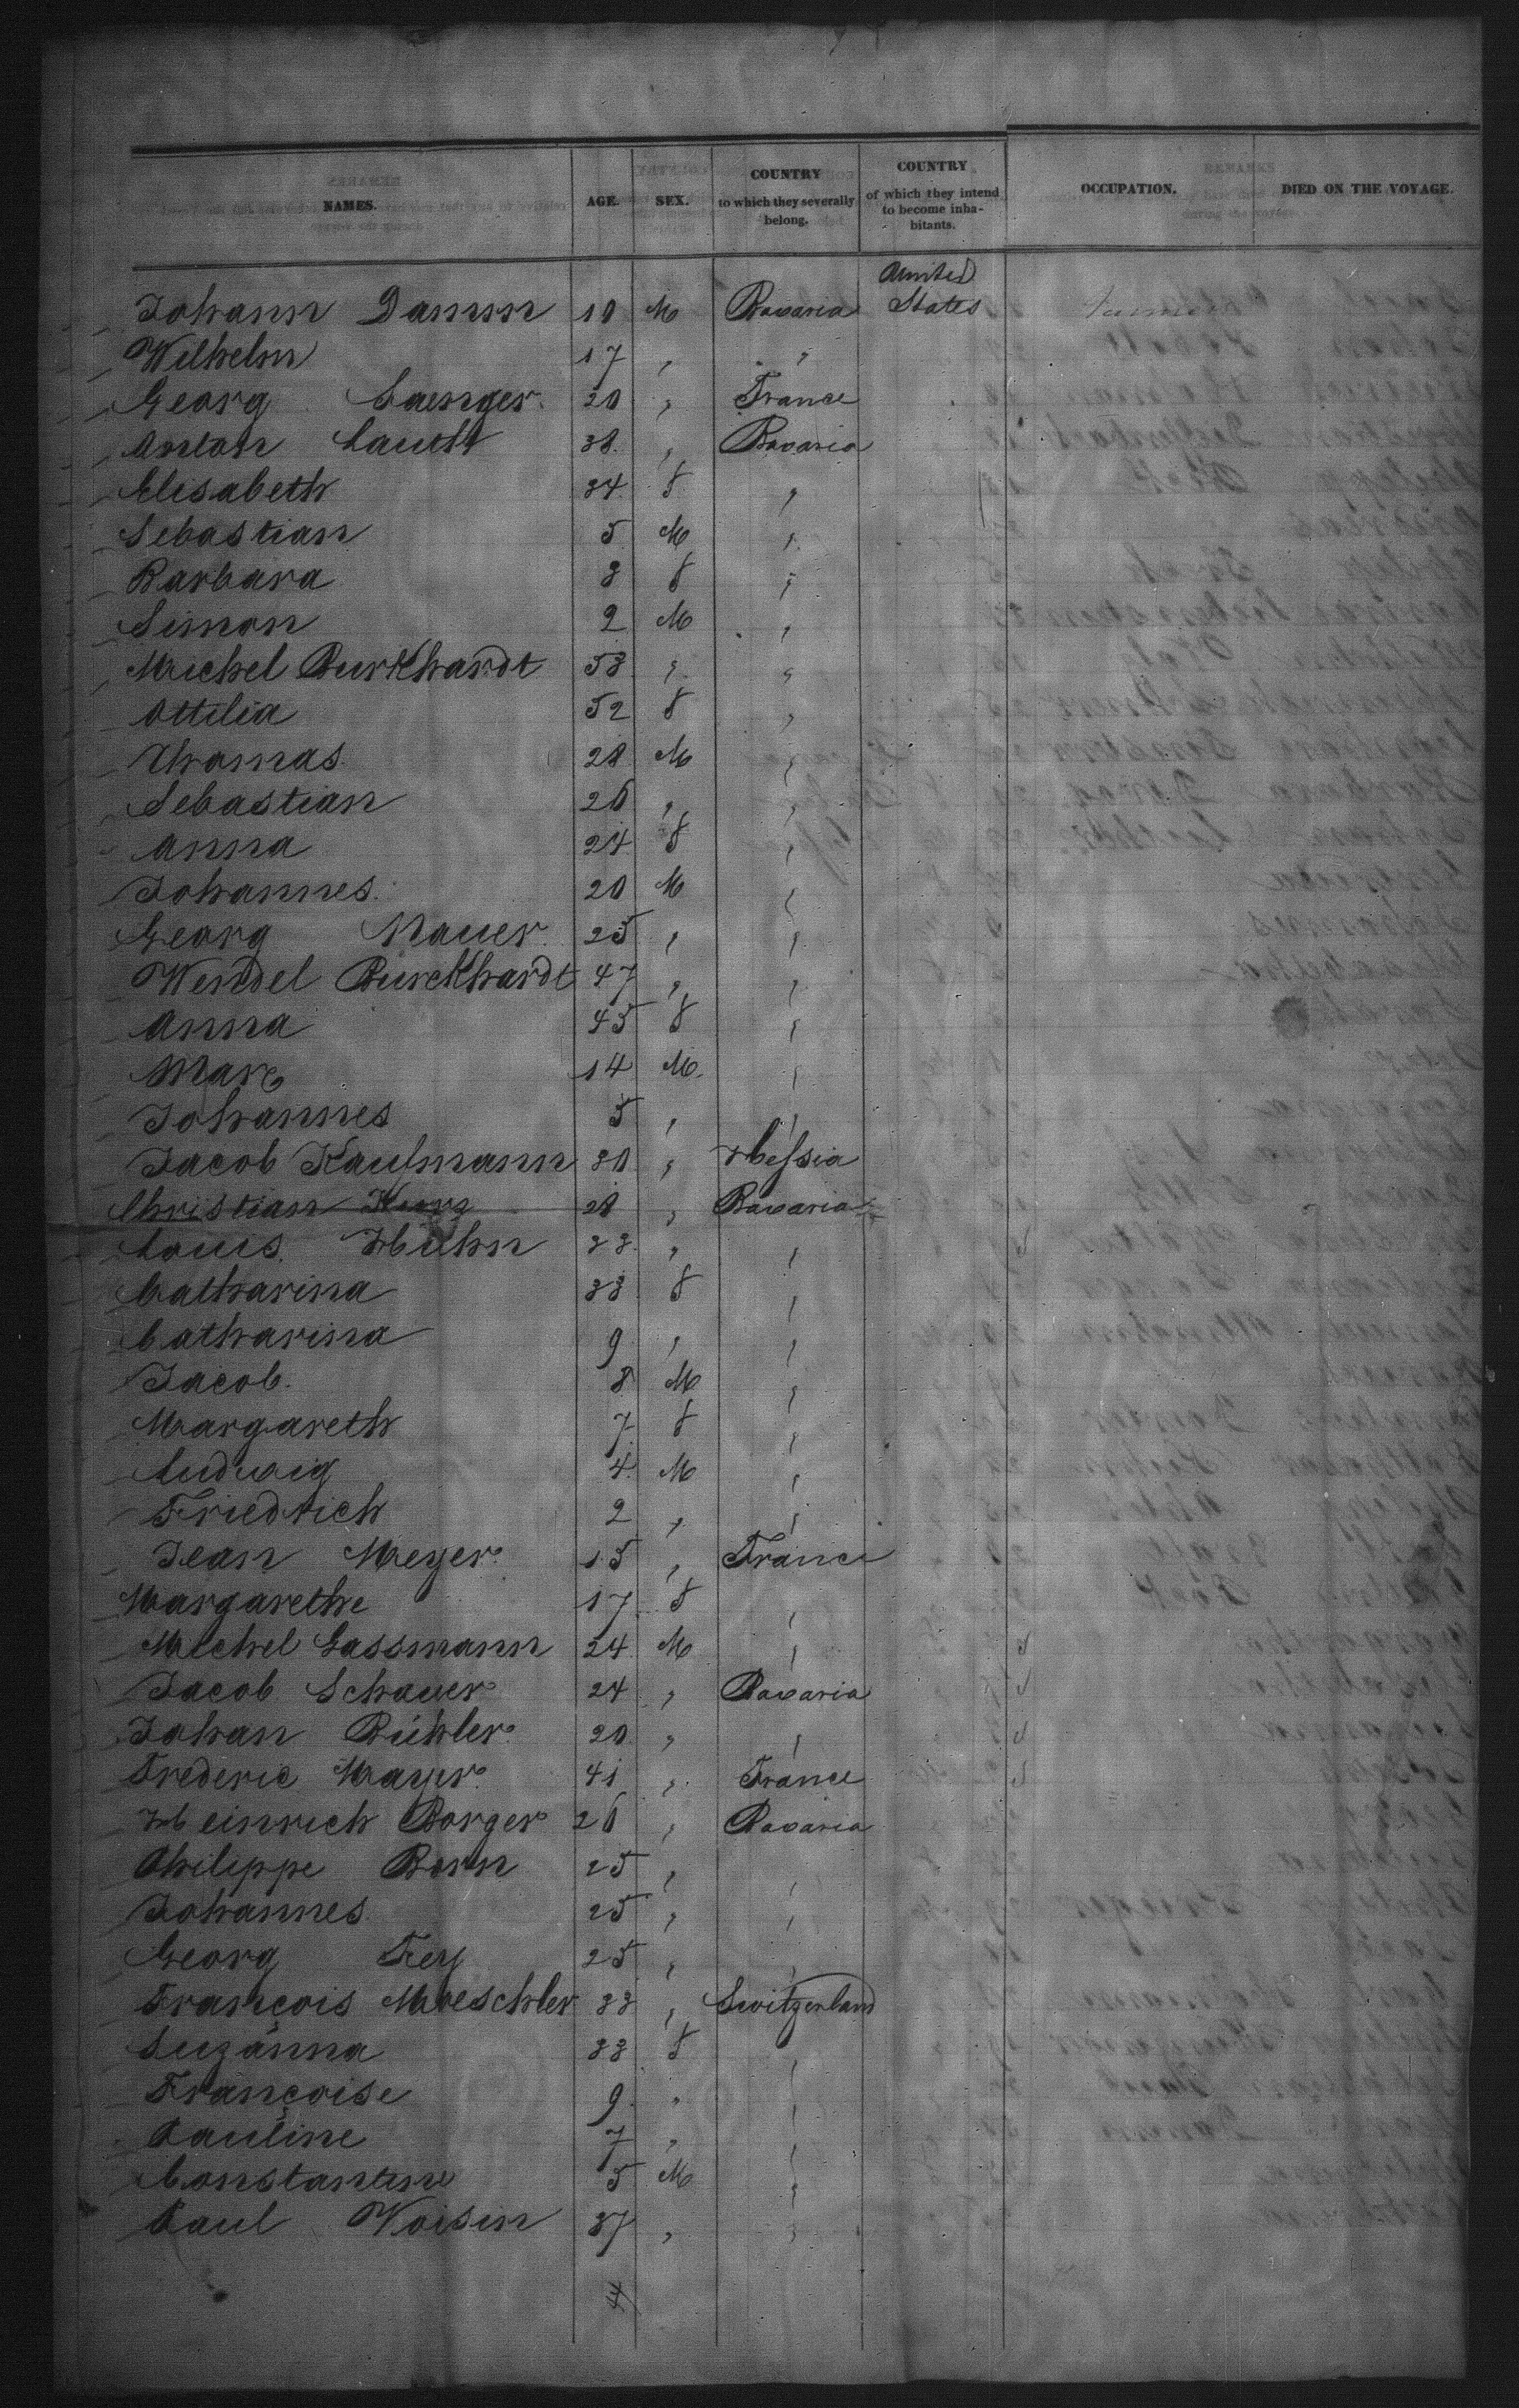 NAMES. AGE. SEX. COUNTRY to which they severally belong. COUNTRY of which they intend to become inhabitants. OCCUPATION. REMARKS DIED ON THE VOYAGE.
United
Johann Damm 10 M Bavaria States
Wilhelm 17 " "
Georg Saenger 20 " France
Anton Lauth 38. " Bavaria
Elisabeth 34 F "
Sebastian 5 M "
Barbara 3 F "
Simon 2 M "
Michel Burkhardt 53 " "
Ottilia 52 F "
Thomas. 28 M "
Sebastian 26 " "
Anna 24 F "
Johannes. 20 M "
Georg Mauer 25 " "
Wendel Burckhardt 47 " "
Anna 45 F "
Marc 14 M. "
Johannes 5 " "
Jacob Kaufmann 30 " Hessia
Christian 28 " Bavaria
Louis. Huhn 33. " "
Catharina 33 F "
Catharina 9 " "
Jacob. 8 M "
Margareth 7 F "
Ludwig 4. M "
Friedrich 2 " "
Jean Meyer 15 " France
Margarethe 17 F "
Michel Gassmann 24 M "
Jacob Schauer 24 " Bavaria
Johan Bühler 20 " "
Frederic Mayer 41 " France
Heinrich Borger 26 " Bavaria
Philippe Born 25 " "
Johannes 25 " "
Georg Fey 25 " "
François Moeschler 33 " Switzerland
Suzanna 33 F "
Françoise 9 " "
Pauline 7 " "
Constantine 5 M "
Paul Voisin 37 " "